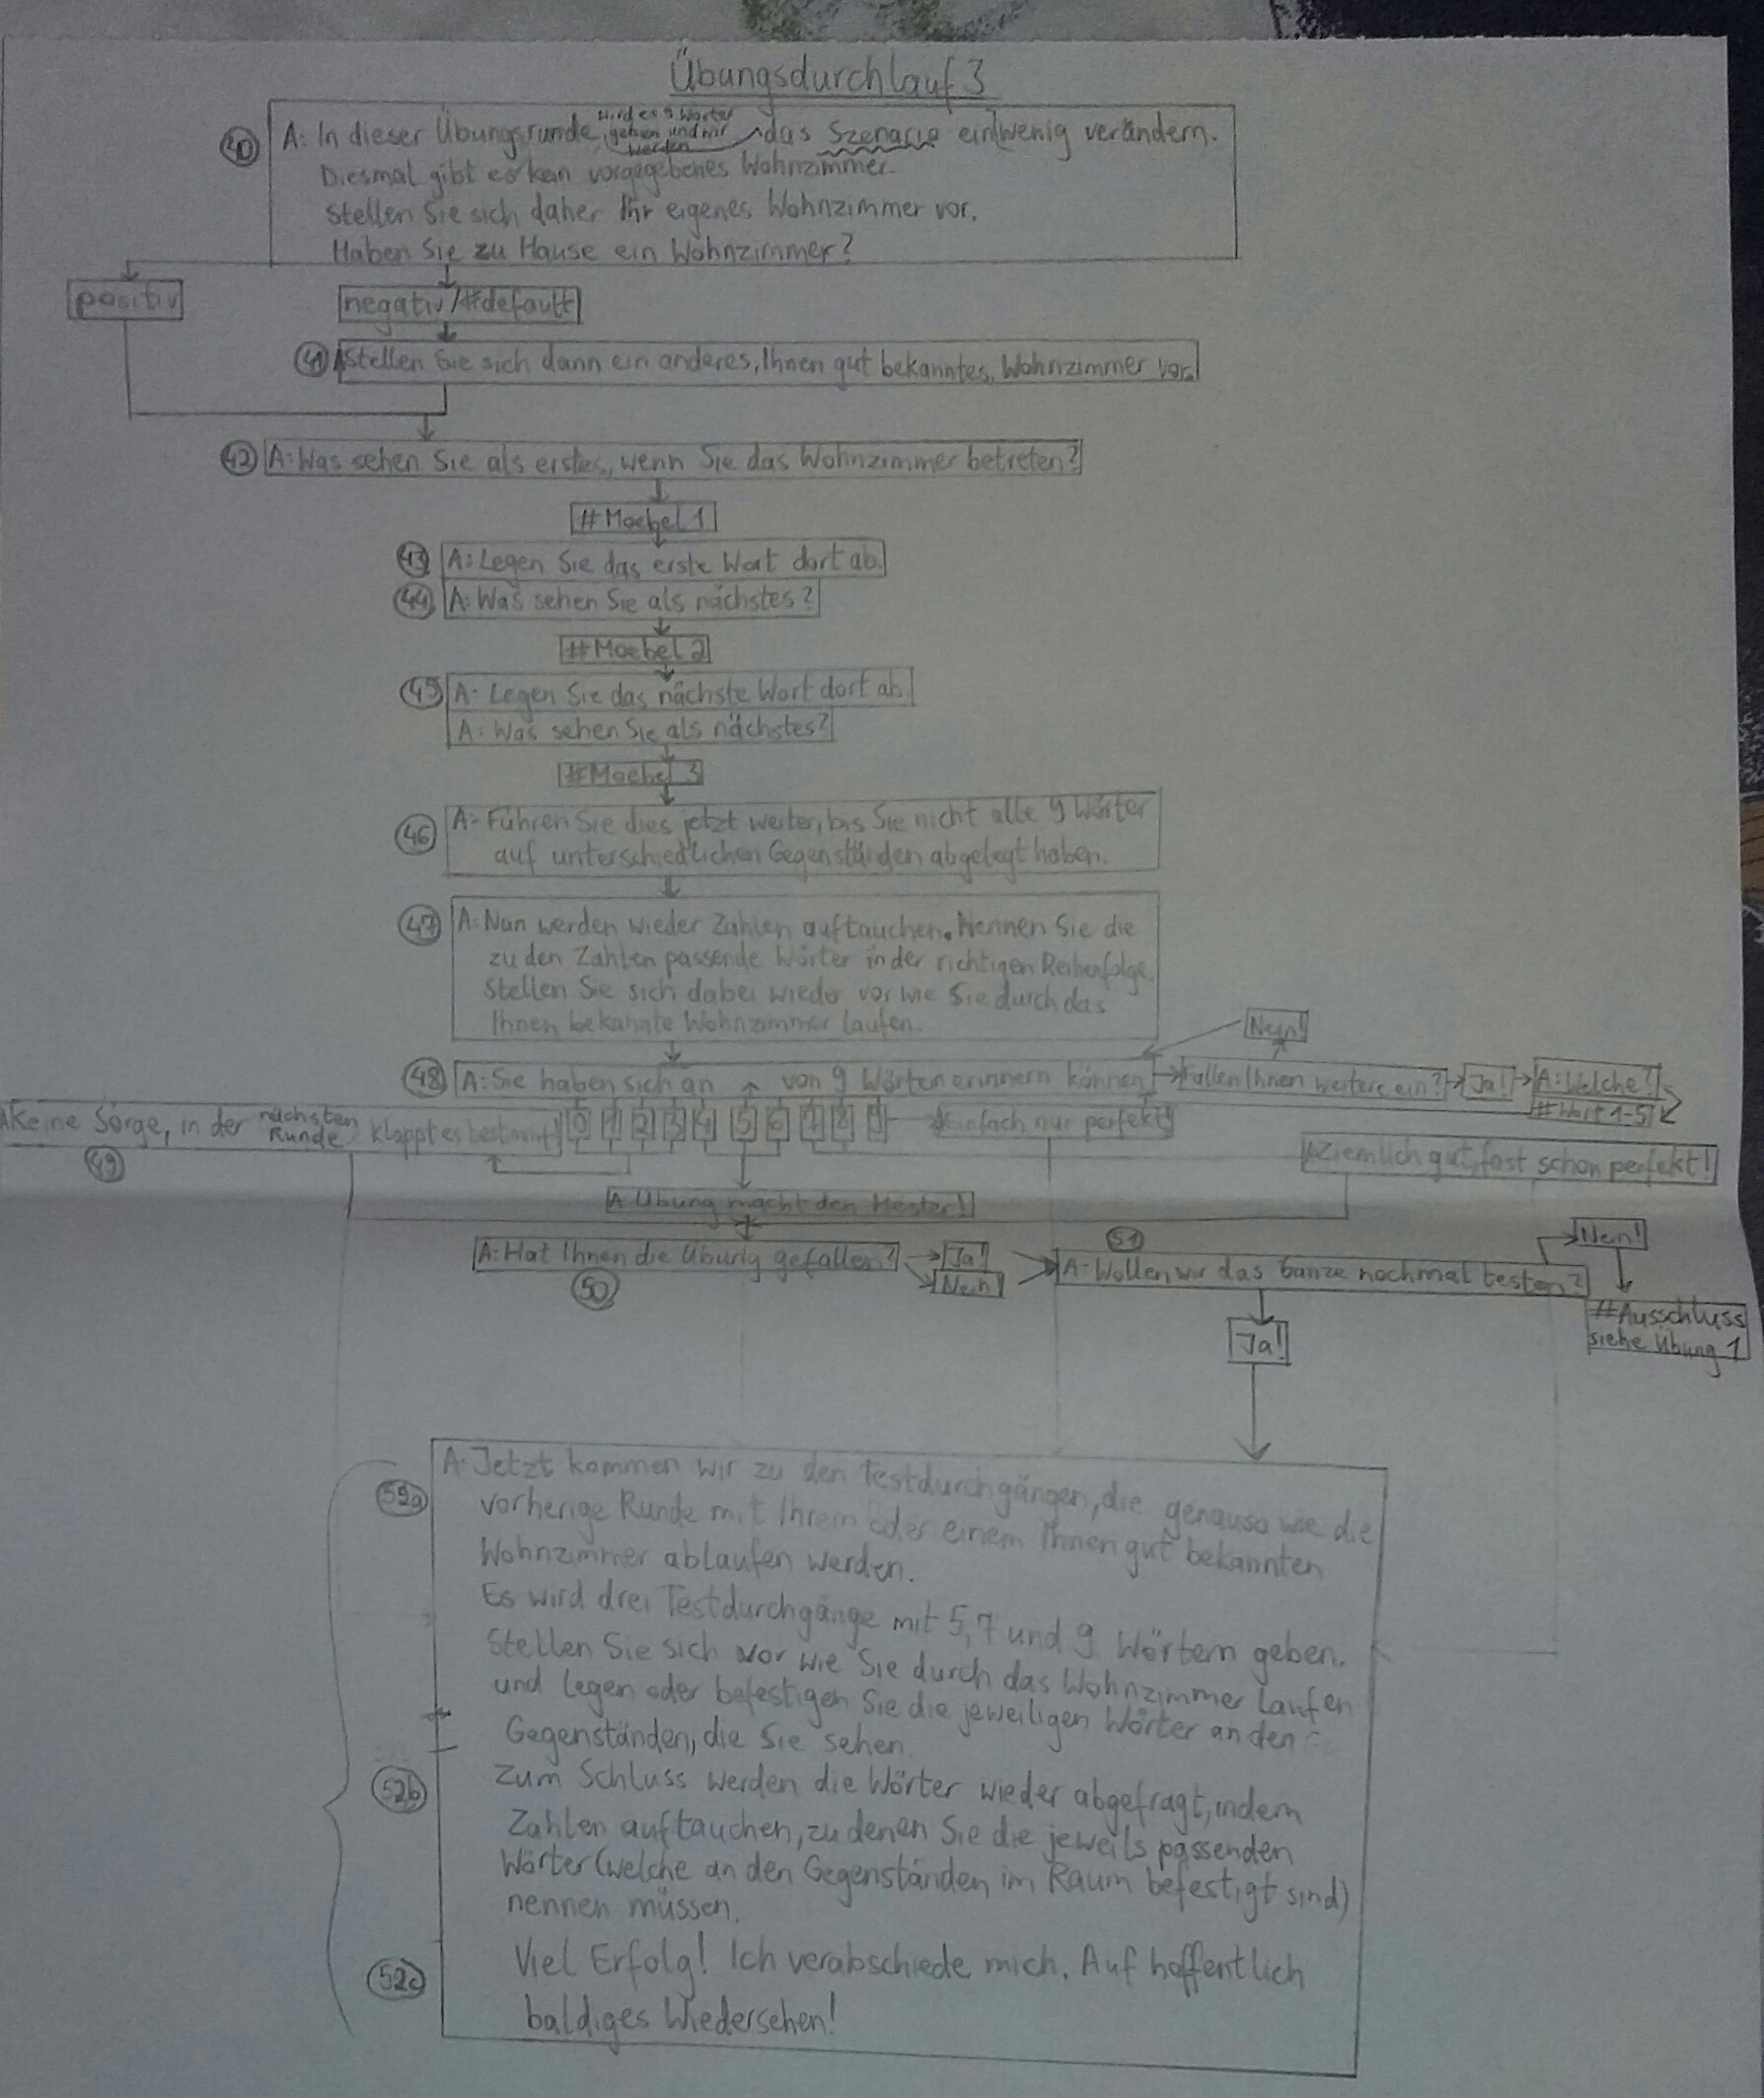 Übungsdurchlauf 3
40
A: In dieser Übungsrunde, wird es 9 Wörter geben und wir werden das Szenario ein wenig verändern.
Diesmal gibt es kein vorgegebenes Wohnzimmer.
Stellen Sie sich daher Ihr eigenes Wohnzimmer vor.
Haben Sie zu Hause ein Wohnzimmer?
positiv
negativ/#default
41
A Stellen Sie sich dann ein anderes, Ihnen gut bekanntes, Wohnzimmer vor.
42
A: Was sehen Sie als erstes, wenn Sie das Wohnzimmer betreten?
#Moebel 1
43
A: Legen Sie das erste Wort dort ab.
44
A: Was sehen Sie als nächstes?
#Moebel 2
45
A: Legen Sie das nächste Wort dort ab.
A: Was sehen Sie als nächstes?
#Moebel 3
46
A: Führen Sie dies jetzt weiter, bis Sie nicht alle 9 Wörter
auf unterschiedlichen Gegenständen abgelegt haben.
47
A: Nun werden wieder Zahlen auftauchen. Nennen Sie die
zu den Zahlen passende Wörter in der richtigen Reihenfolge.
Stellen Sie sich dabei wieder vor wie Sie durch das
Ihnen bekannte Wohnzimmer laufen.
Nein!
48
A: Sie haben sich an von 9 Wörtern erinnern können
Fallen Ihnen weitere ein?
Ja!
A: Welche?
#Wort 1-5
A Keine Sorge, in der nächsten Runde klappt es bestimmt!
0 1 2 3 4 5 6 7 8 9
Einfach nur perfekt!
49
A Ziemlich gut, fast schon perfekt!
A Übung macht den Meister!
A: Hat Ihnen die Übung gefallen?
Ja!
Nein!
50
51
A: Wollen wir das Ganze nochmal testen?
Nein!
#Ausschluss
siehe Übung 1
Ja!
52a
A: Jetzt kommen wir zu den Testdurchgängen, die genauso wie die
vorherige Runde mit Ihrem oder einem Ihnen gut bekannten
Wohnzimmer ablaufen werden.
Es wird drei Testdurchgänge mit 5, 7 und 9 Wörtern geben.
Stellen Sie sich vor wie Sie durch das Wohnzimmer laufen
und legen oder befestigen Sie die jeweiligen Wörter an den
Gegenständen, die Sie sehen.
52b
Zum Schluss werden die Wörter wieder abgefragt, indem
Zahlen auftauchen, zu denen Sie die jeweils passenden
Wörter (welche an den Gegenständen im Raum befestigt sind)
nennen müssen.
52c
Viel Erfolg! Ich verabschiede mich. Auf hoffentlich
baldiges Wiedersehen!